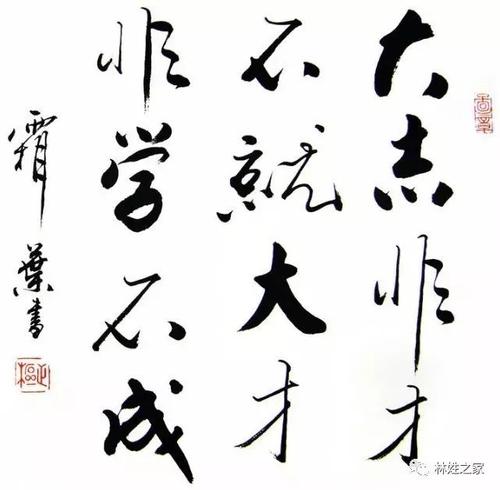 大志非才
不就大才
非学不成
霜叶書
林姓之家